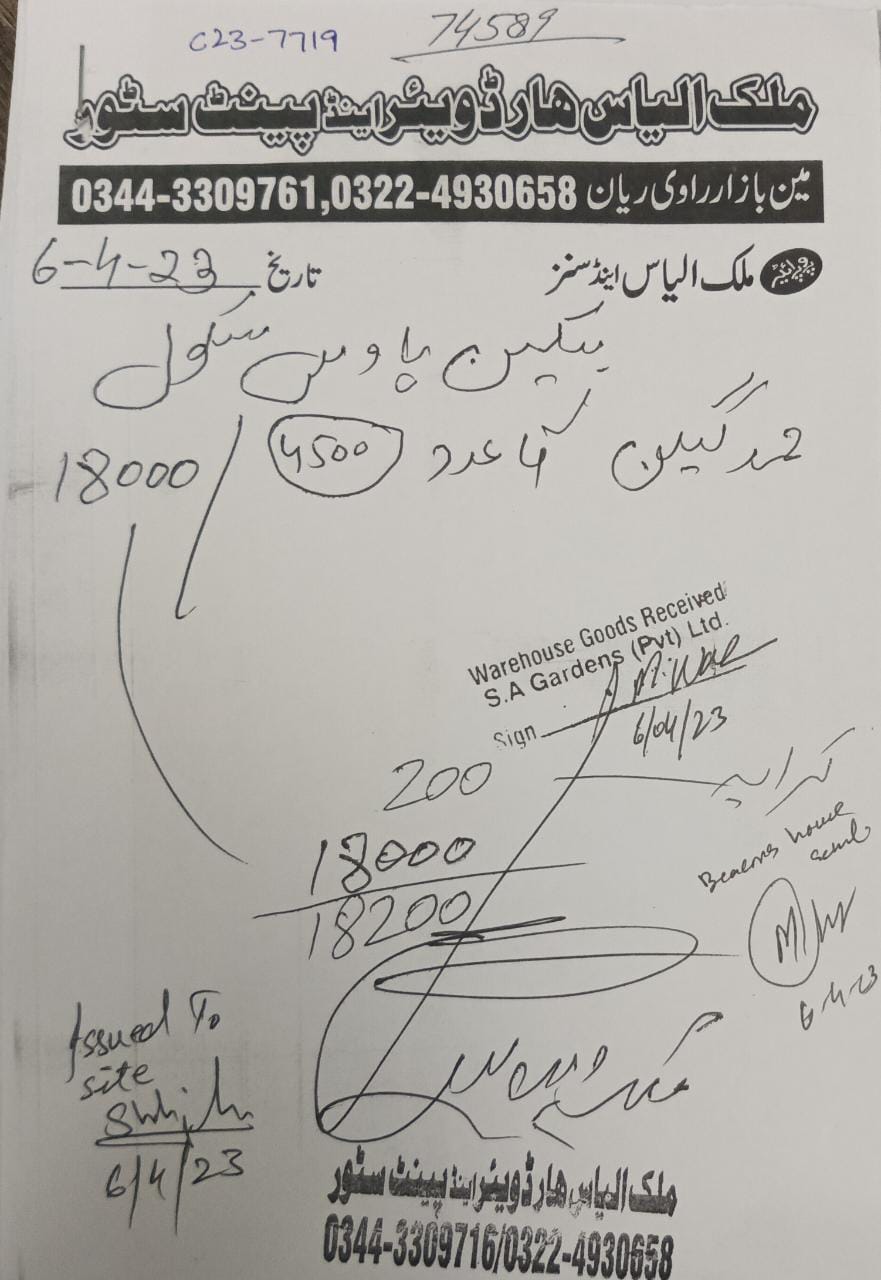 C23-7719
74589
ملک الیاس ھارڈویئر اینڈ پینٹ سٹور
مین بازار راوی ریان 0344-3309761,0322-4930658
پروپرائیٹر ملک الیاس اینڈ سنز
تاریخ 6-4-23
بیکن ہاوس سکول
گیلن 4 عدد 4500 18000
Warehouse Goods Received
S.A Gardens (Pvt) Ltd.
Sign
6/04/23
کرایہ 200
18000
18200
Beacons house
6-4-23
Issued To
site
6/4/23
ملک الیاس ھارڈویئر اینڈ پینٹ سٹور
0344-3309716/0322-4930658